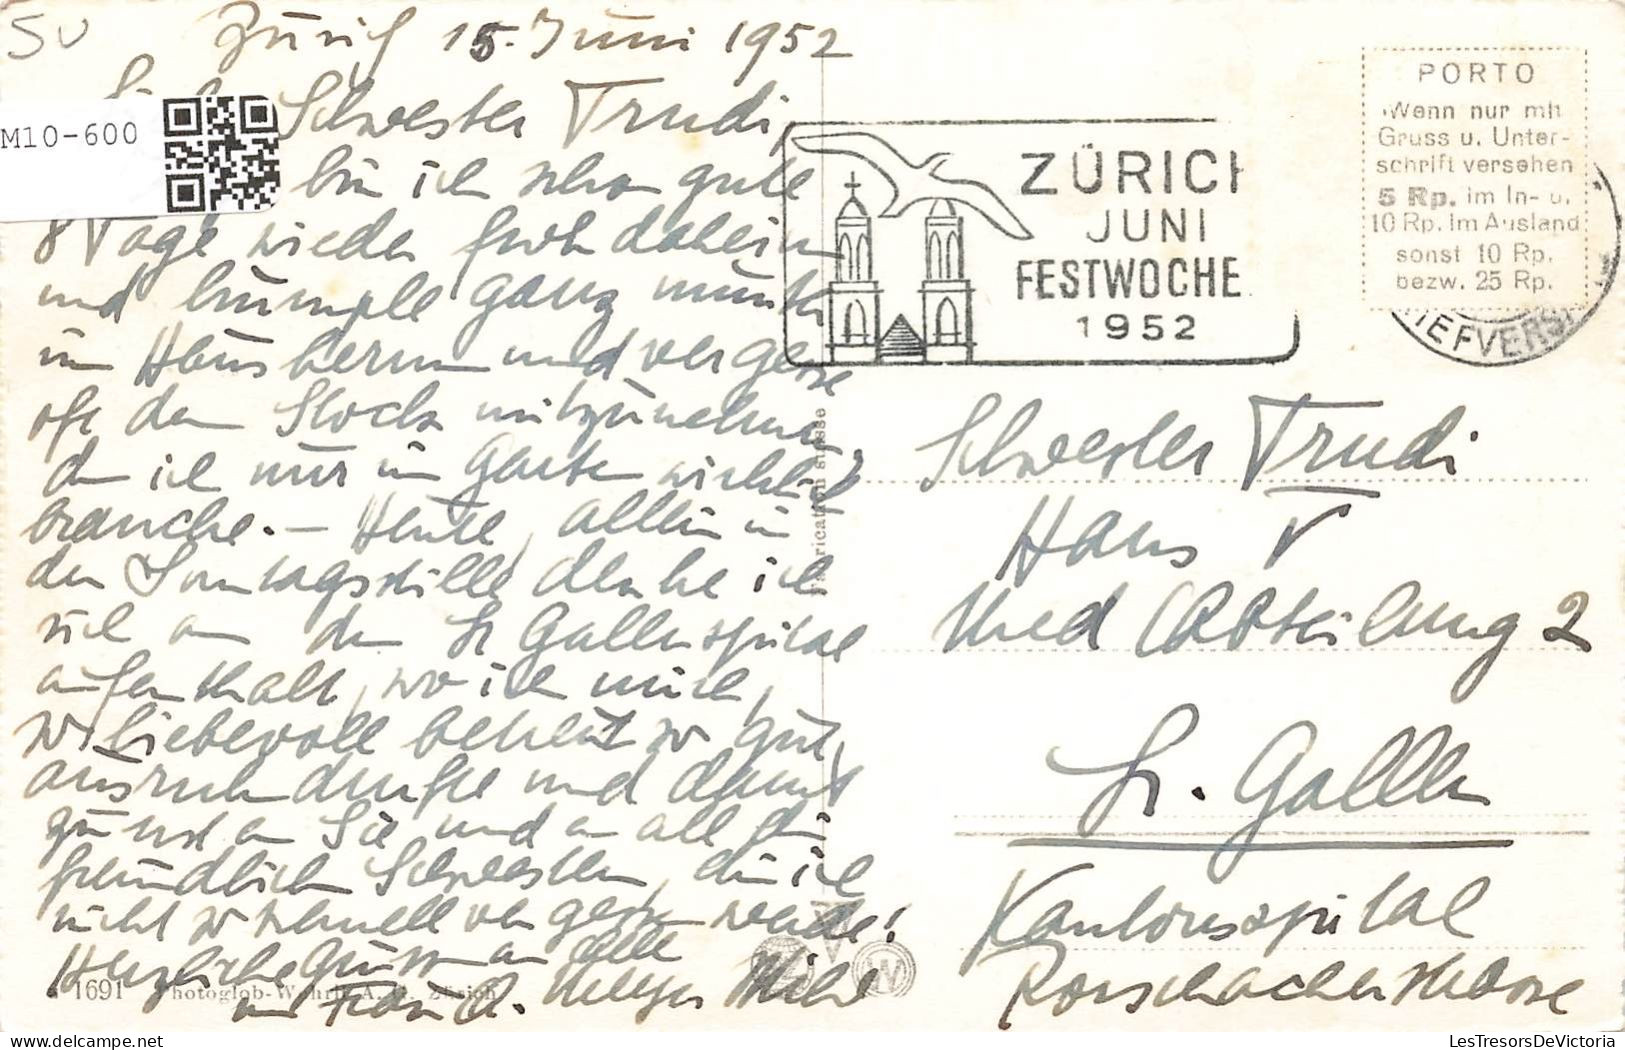 SU
Zürich 15. Juni 1952
Schwester Trudi,
M10-600
bin ich schon gute
8 Tage wieder froh daheim
und humple ganz munter
im Haus herum und vergesse
oft den Stock mitzunehmen
den ich nur im Garten wirklich
brauche. – Heute, allein in
der Sonntagsstille denke ich
viel an den St Gallerspital
aufenthalt, wo ich mich,
so liebevoll betreut so gut,
ausruhn durfte und damit
zuerst an Sie und an all die
freundlich Schwestern, die ich
nicht so schnell vergessen werde!
Herzliche Grüsse an alle
von Frau A. Meyer
1691 Photoglob-Wehrli A. G. Zürich
Fabrication suisse
ZÜRICH
JUNI
FESTWOCHE
1952
PORTO
Wenn nur mit
Gruss u. Unter-
schrift versehen
5 Rp. im In- u.
10 Rp. im Ausland
sonst 10 Rp.
bezw. 25 Rp.
IEFVERS
Schwester Trudi
Haus V
Med Abteilung 2
St. Gallen
Kantonsspital
Rorschacherstrasse
LesTresorsDeVictoria